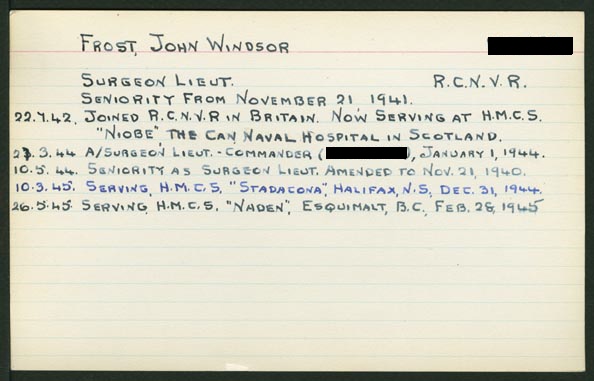 FROST, JOHN WINDSOR
SURGEON LIEUT. R.C.N.V.R.
SENIORITY FROM NOVEMBER 21, 1941.
22.7.42. JOINED R.C.N.V.R IN BRITAIN. NOW SERVING AT H.M.C.S.
"NIOBE", THE CAN. NAVAL HOSPITAL IN SCOTLAND.
27.3.44 A/SURGEON LIEUT.-COMMANDER ( ), JANUARY 1, 1944.
10.5.44. SENIORITY AS SURGEON LIEUT. AMENDED TO NOV. 21, 1940.
10.3.45. SERVING, H.M.C.S. "STADACONA", HALIFAX, N.S., DEC. 31, 1944.
26.5.45 SERVING, H.M.C.S. "NADEN", ESQUIMALT, B.C., FEB. 28, 1945